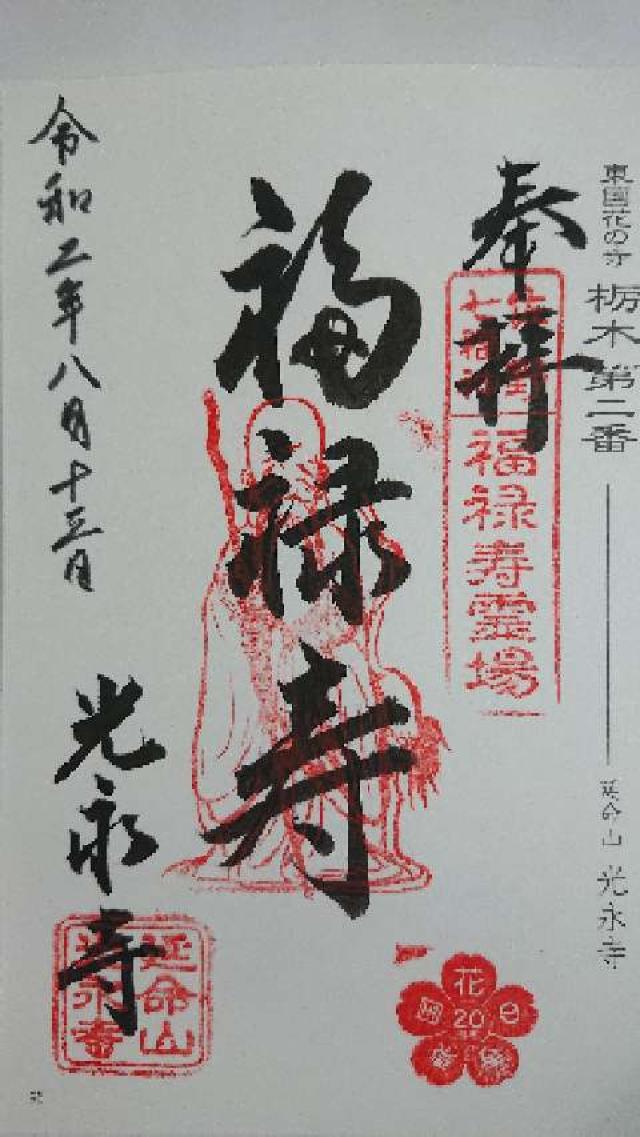 東国花の寺 栃木第二番 延命山 光永寺
奉拝
七福神
福禄寿霊場
福禄寿
令和二年八月十三日
光永寺
延命山
光永寺
花
20